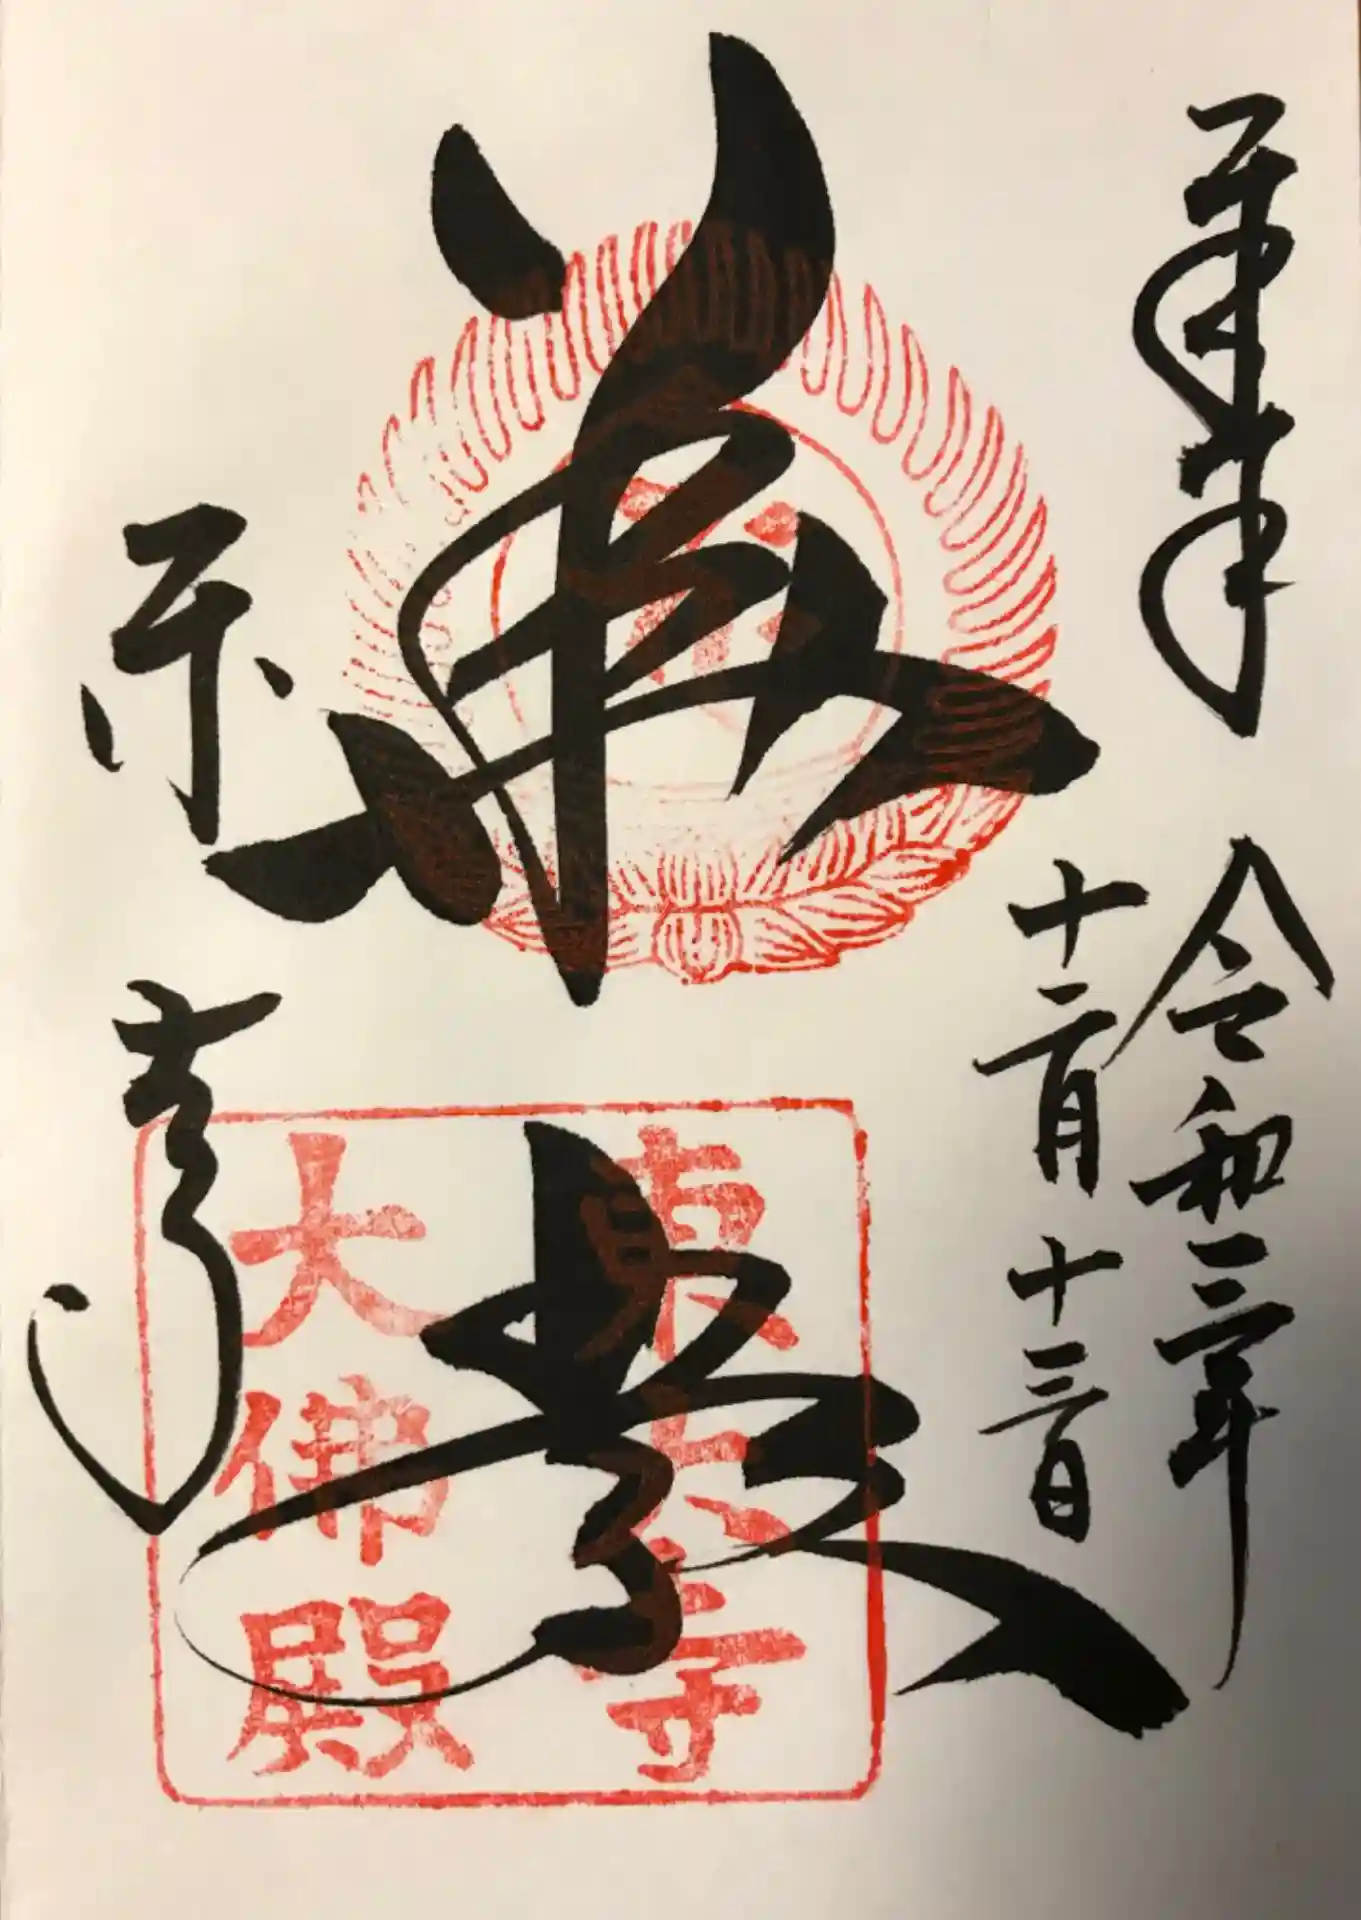 奉拝
令和三年
十二月十三日
華嚴
東大寺
大佛殿